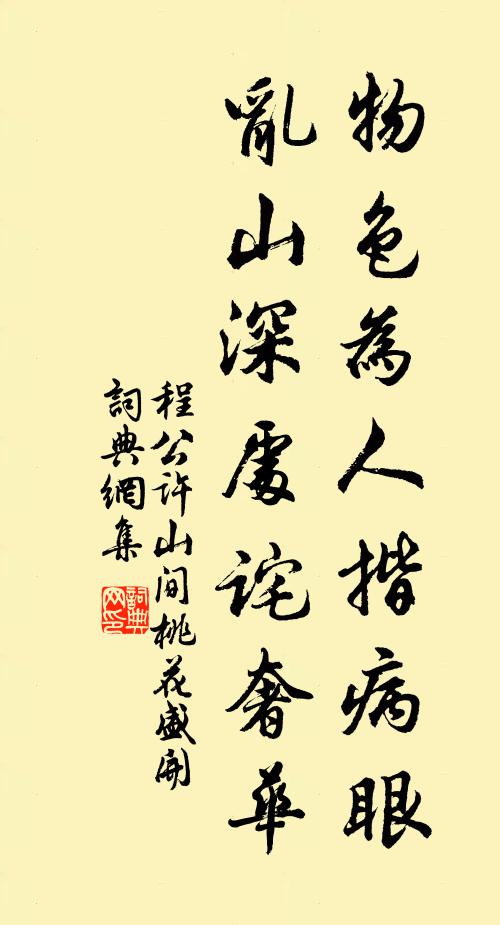 物色為人揩病眼
亂山深處詫奢華
程公許山間桃花盛開
詞典網集
詞典
网印